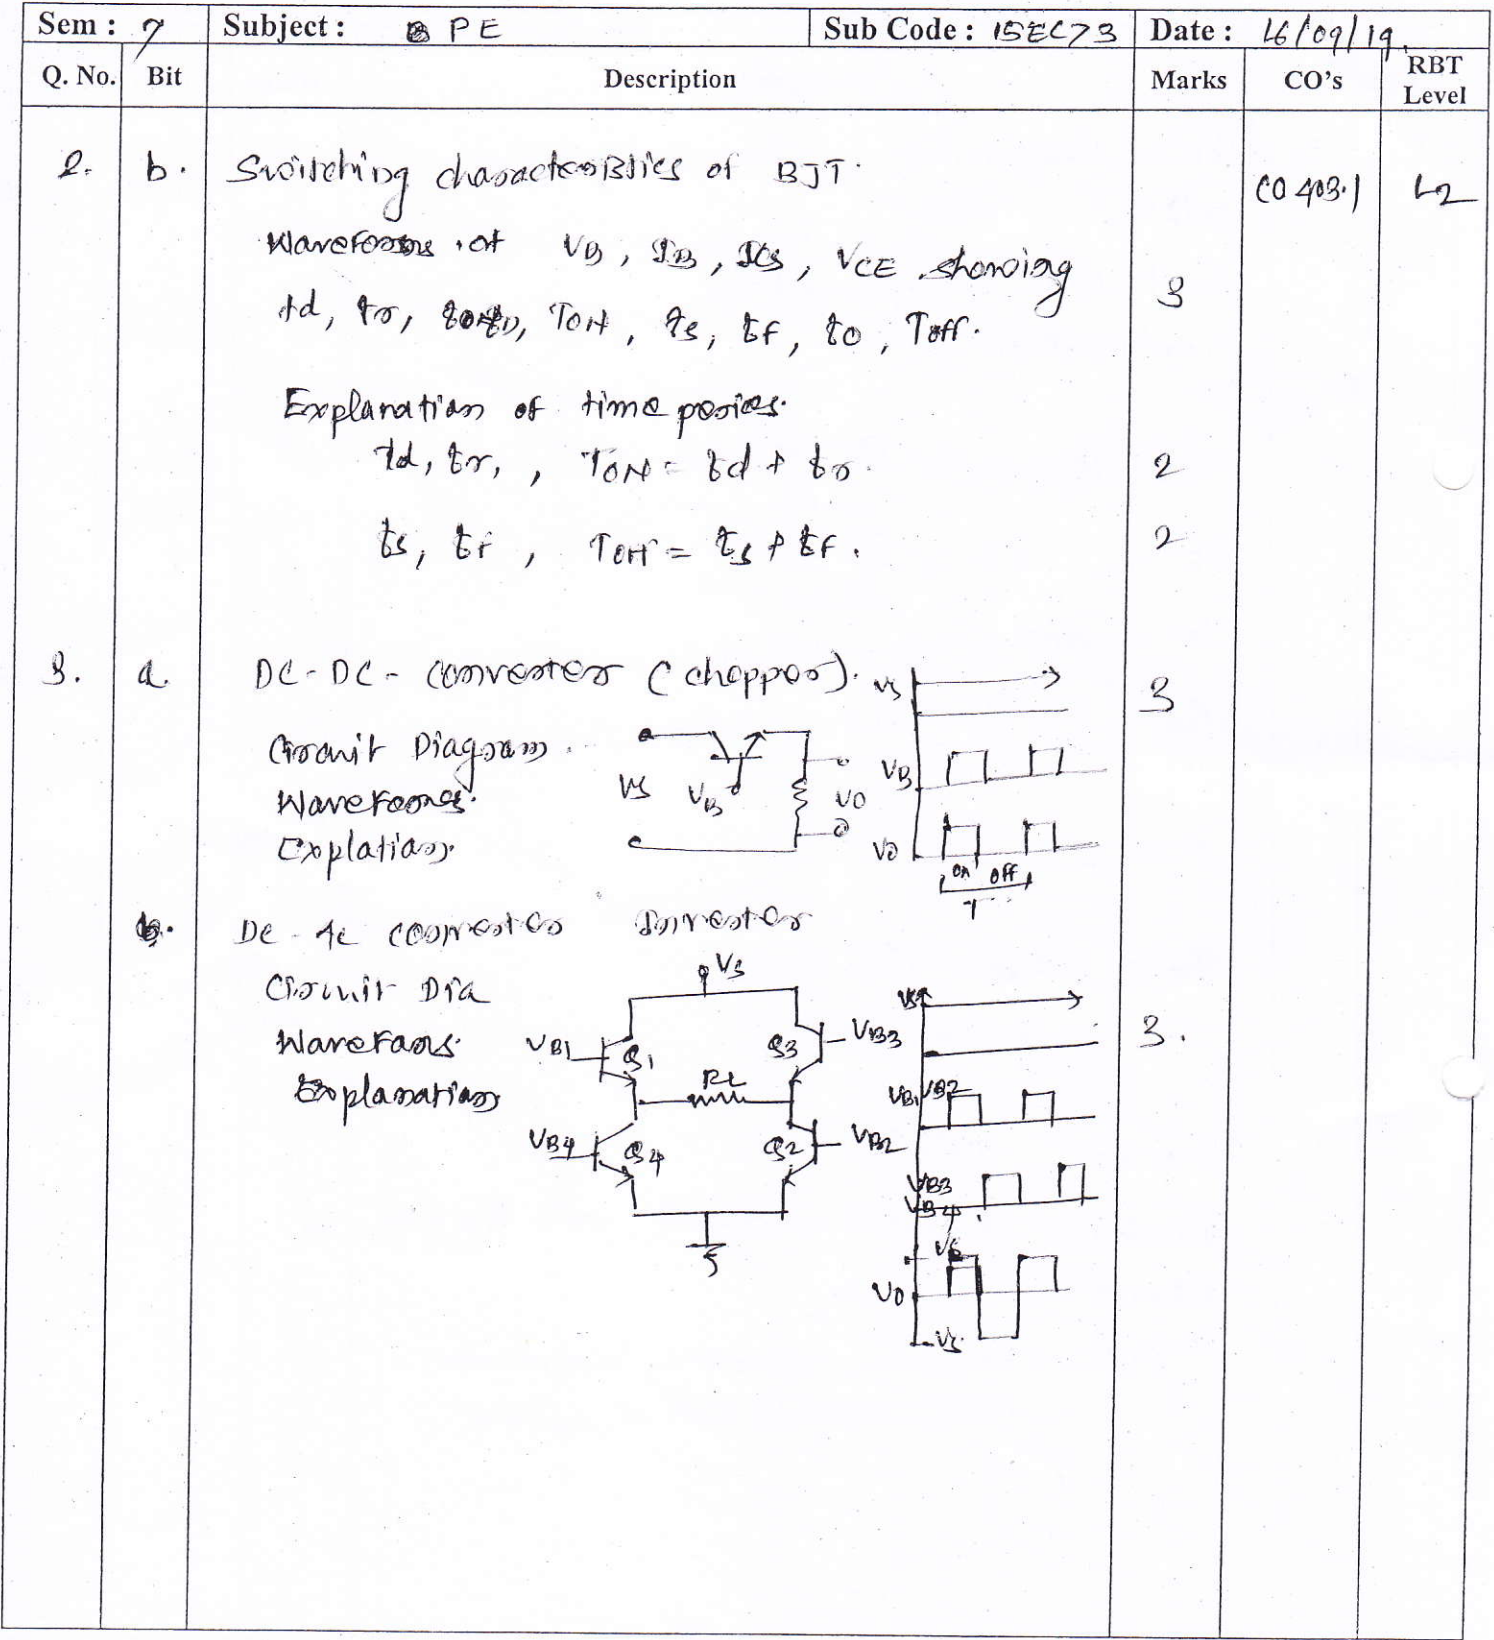 Sem : 7 Subject : PE Sub Code : 15EC73 Date : 16/09/19
Q. No. Bit Description Marks CO's RBT Level
2. b. Switching characteristics of BJT. CO 403.1 L2
Waveforms of VB, IB, VCE showing 3
td, tr, TON, ts, tf, to, Toff.
Explanation of time
td, tr, , TON = td + tr. 2
ts, tf , Toff = ts + tf. 2
3. a. DC-DC- converter (chopper). 3
Circuit Diagram.
Waveforms.
Explation.
VS VB VO
VS
VB
VO
on off
T
b. DC - AC converter Inverter
Circuit Dia 3.
Waveforms.
Explanation
VS
VB1 Q1 Q3 VB3
RL
VB4 Q4 Q2 VB2
VS
VB1 VB2
VB3
VB4
VS
VO
-VS